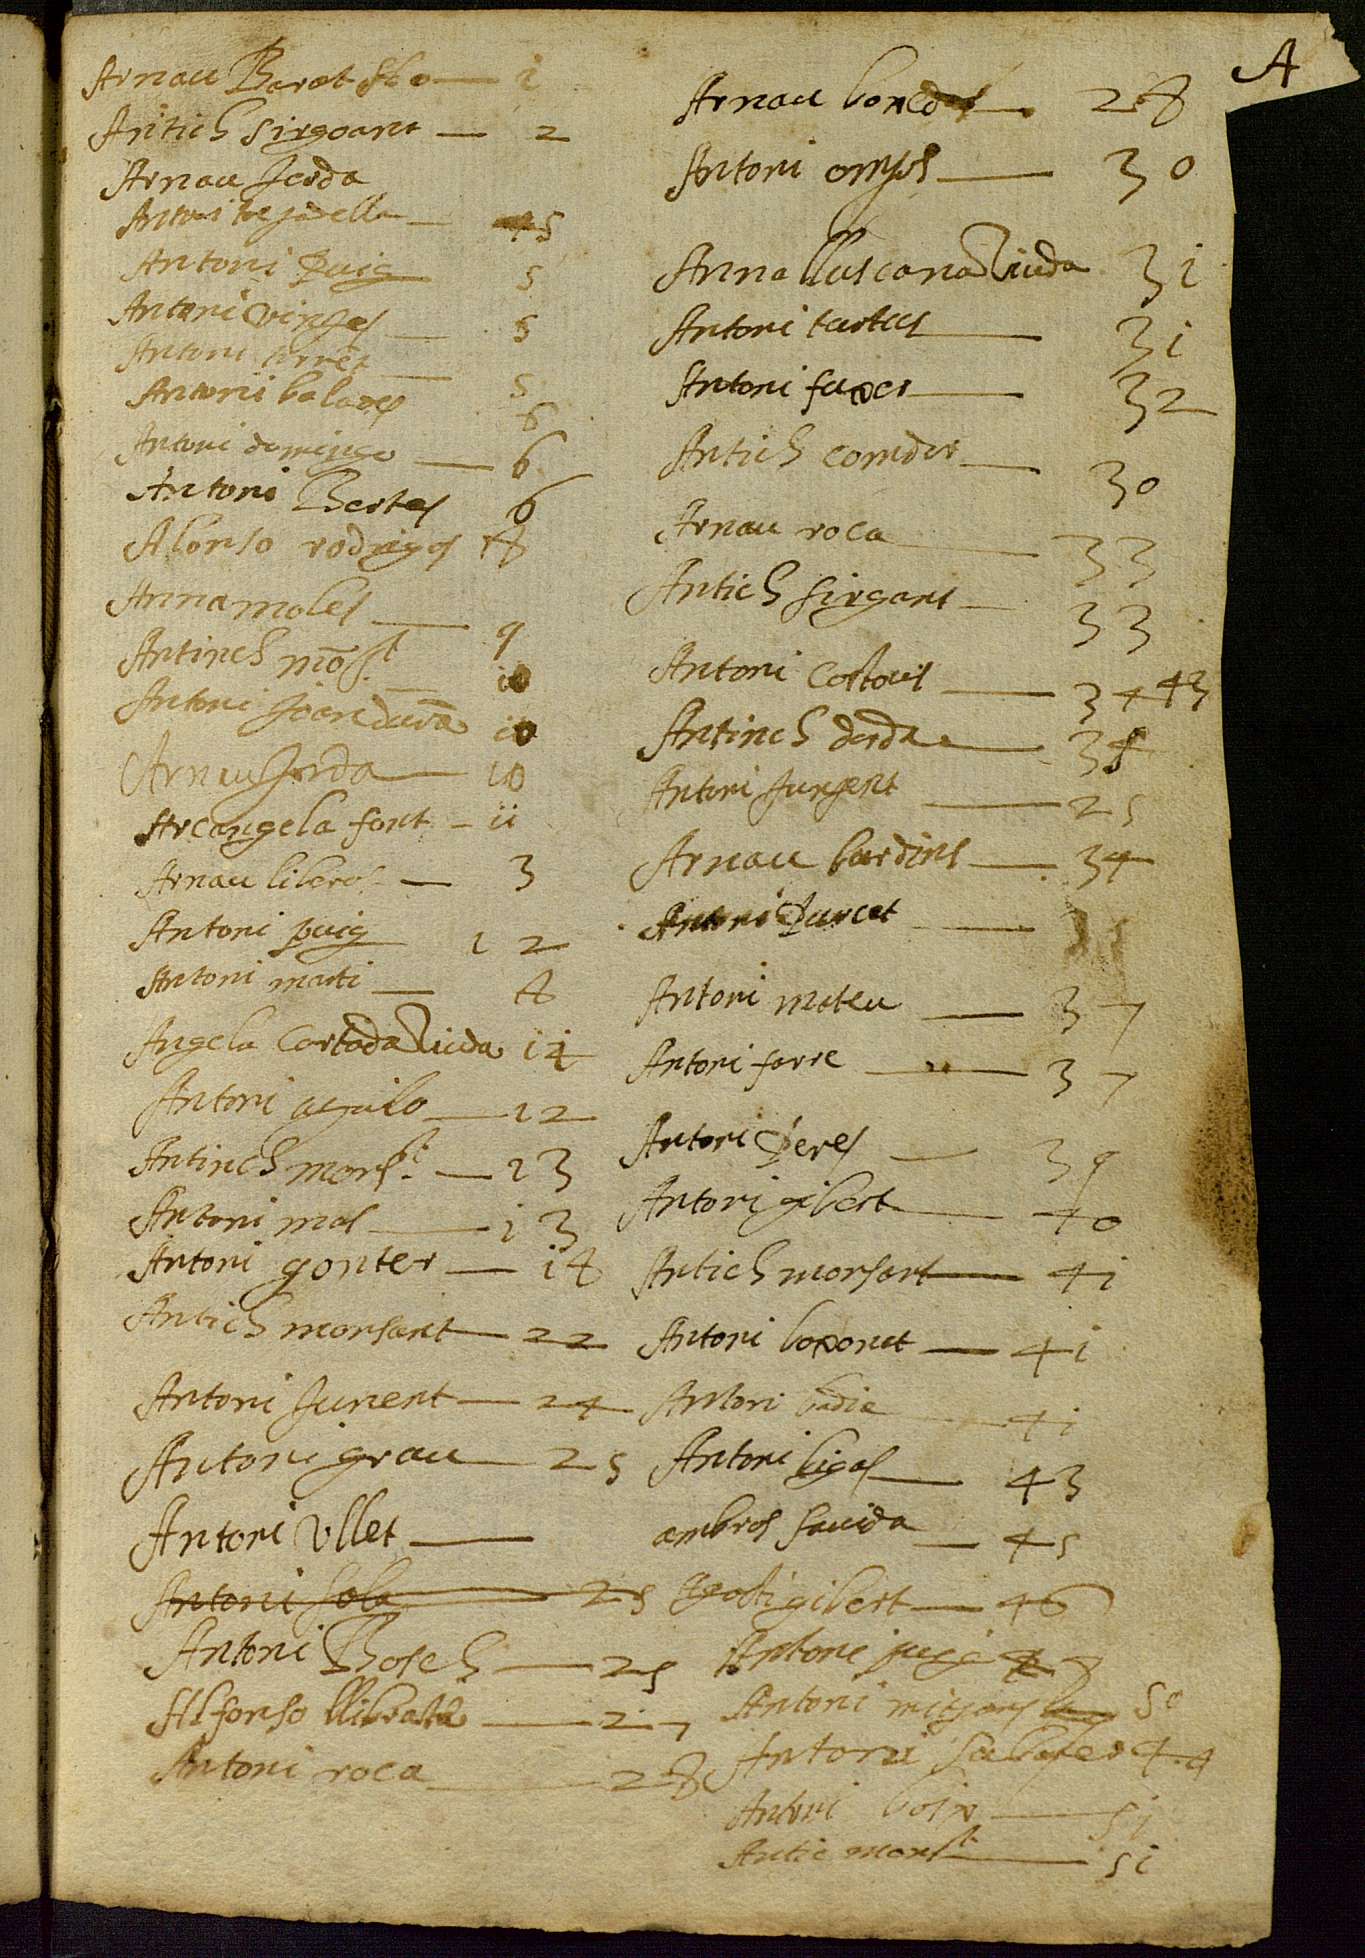 A
Arnau Barot 1
Antich sirgant — 2
Arnau Jorda
Antoni 5
Antoni Puig 5
Antoni Vinyes — 5
Antoni torres — 5
Antoni balares 6
Antoni domingo — 6
Antoni Bertes 6
Alonso rodrigos 8
Anna moles — 9
Antinch monst. — 10
Antoni Joan 10
Arnau Jorda — 10
Arcangela font — ii
Arnau liberos — 3
Antoni puig 12
Antoni marti — 8
Angela Cortada Viuda 14
Antoni agulo — 12
Antinch monst. — 13
Antoni mas — 13
Antoni gonter — 18
Antich monsant — 22
Antoni Junent — 24
Antoni grau — 25
Antoni Vllet —
Antoni sola — 25
Antoni Bosch — 25
Alfonso — 27
Antoni roca — 28
Arnau 28
Antoni — 30
Anna lluscana Viuda 31
Antoni tartas — 31
Antoni fuxer — 32
Antich corrider — 30
Arnau roca — 33
Antich sirgant — 33
Antoni Costous — 34 43
Antinch — 34
Antoni Junyent — 25
Arnau bardins — 34
Antoni Purcet —
Antoni mateu — 37
Antoni farre — 37
Antoni Peres — 39
Antoni gibert — 40
Antich monsant — 41
Antoni boxonet — 41
Antoni badie — 41
Antoni bigas — 43
ambros sauida — 45
Agosti gibert — 46
Antoni puig 48
Antoni mitjans 50
Antoni sabater 44
Antoni boix — 51
Antic monst — 51